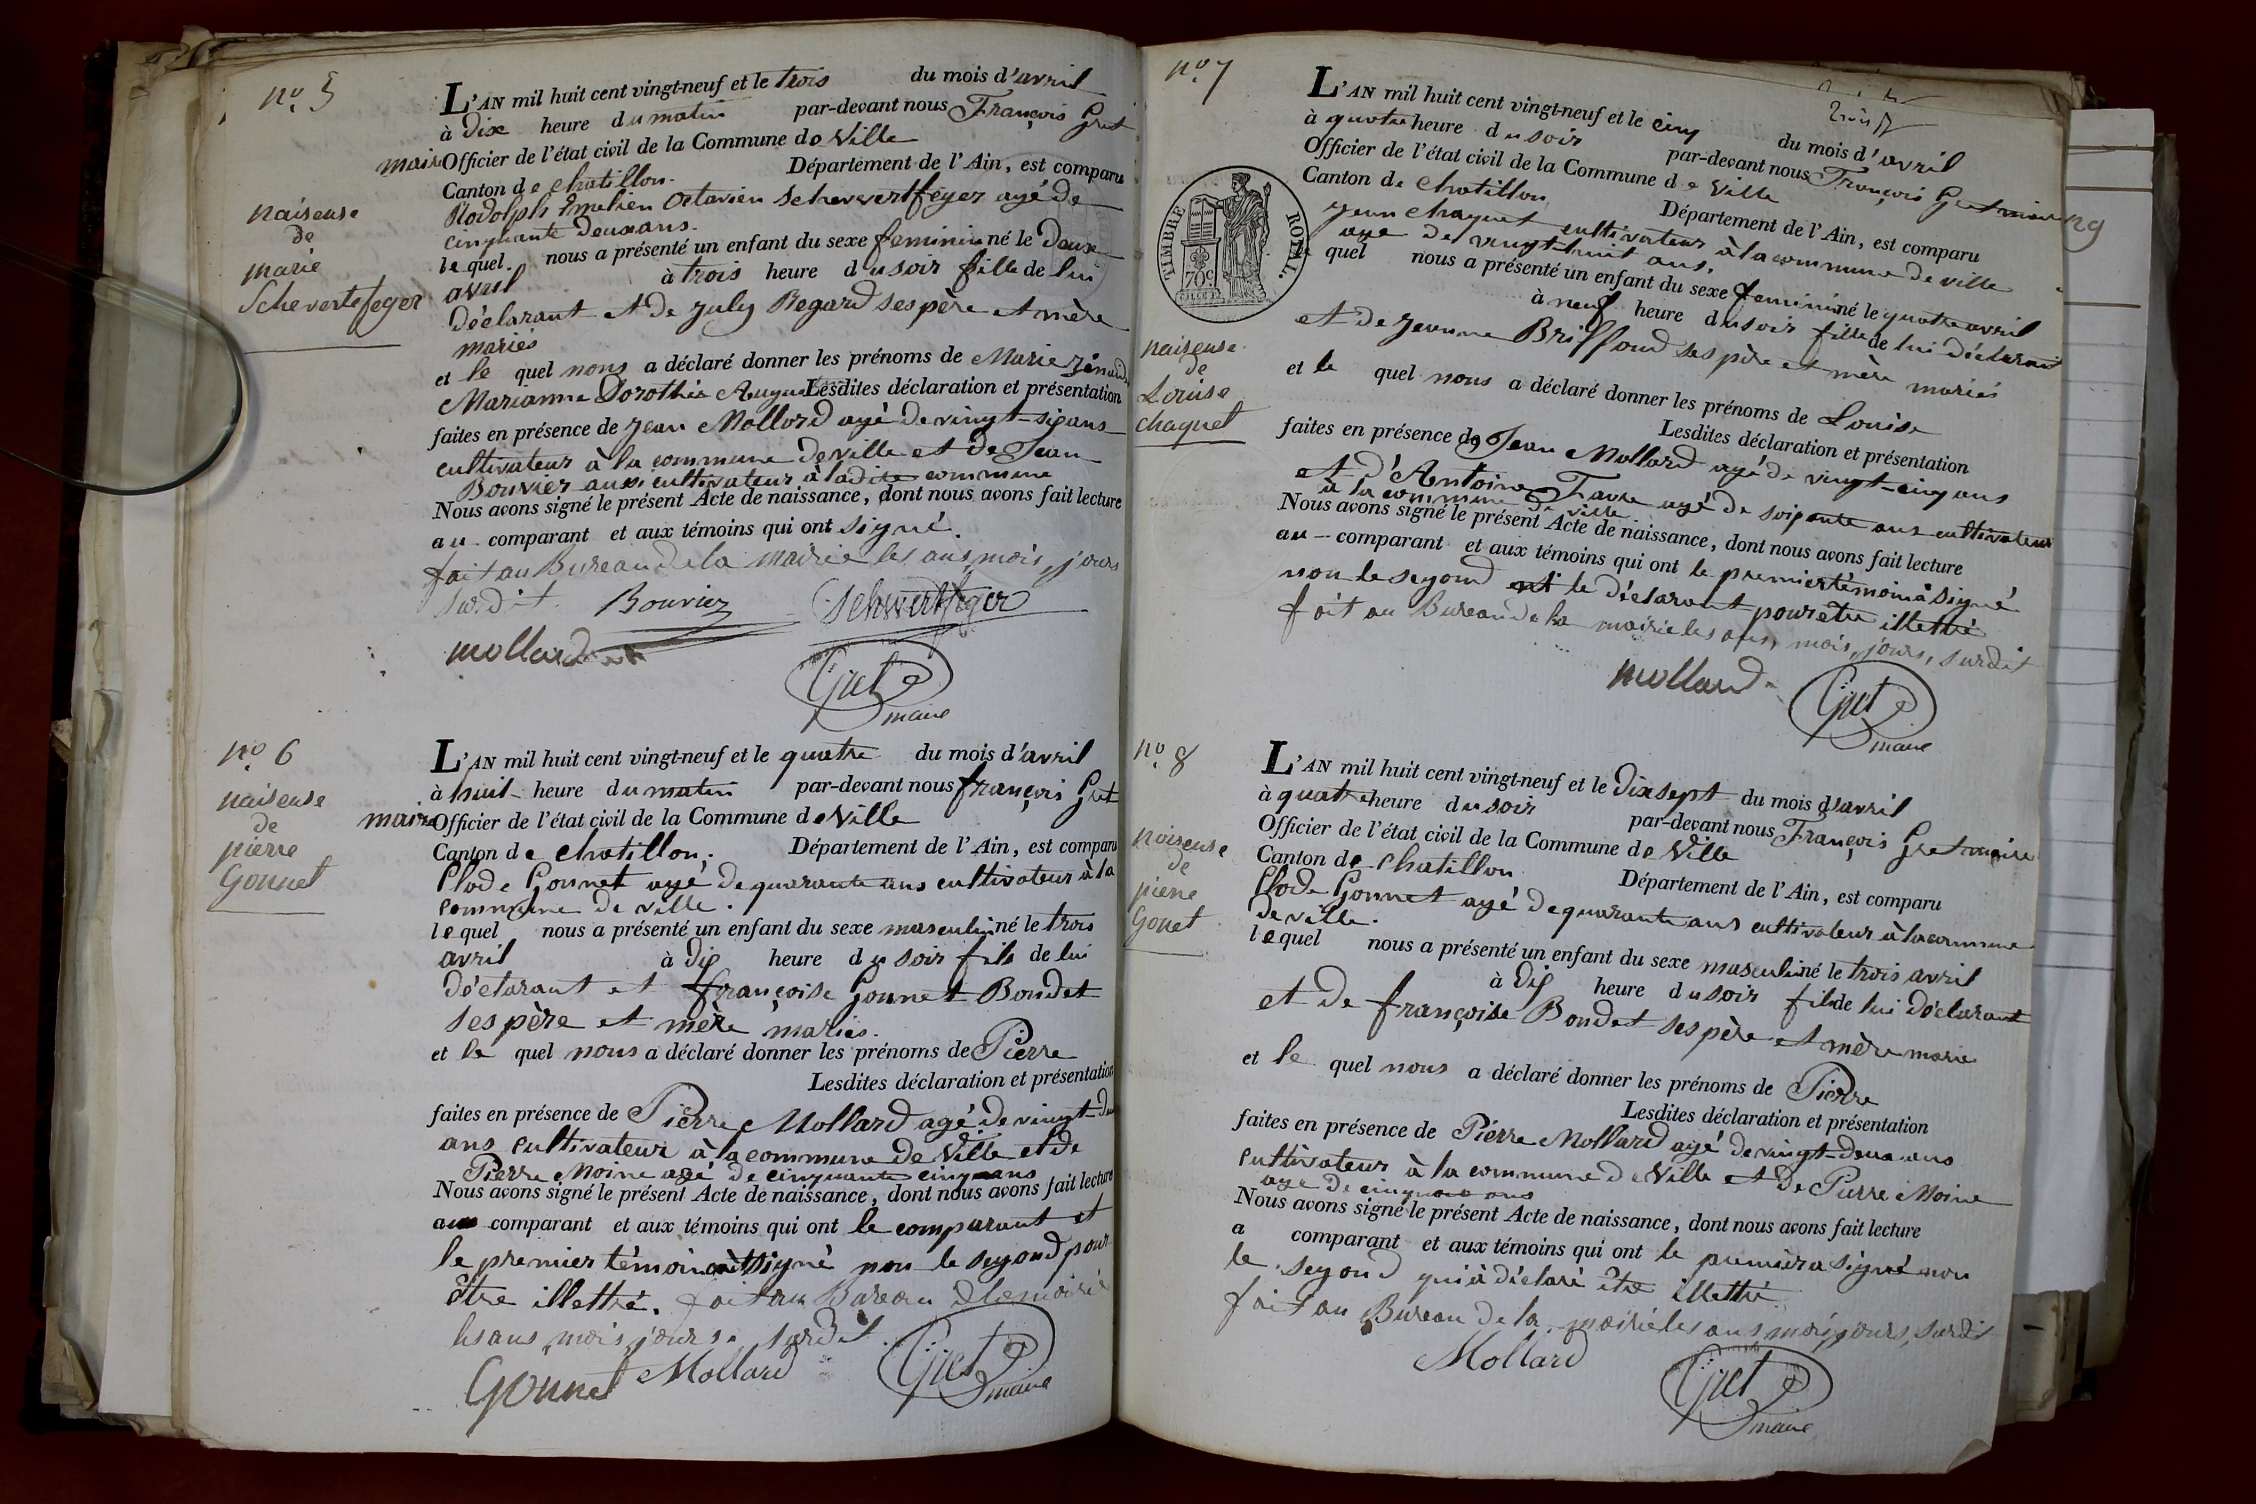 nº. 5
naiseuse
de
marie
Schevertefeger
L'AN mil huit cent vingt-neuf et le trois du mois d'avril
à dix heure du matin par-devant nous François Gret
maire Officier de l'état civil de la Commune de Ville
Canton de chatillon. Département de l'Ain, est comparu
Rodolph Emelien Octavien Schewertfeger agé de
cinquante deux ans.
lequel. nous a présenté un enfant du sexe feminin né le deux
avril à trois heure du soir fille de lui
déclarant et de july Regard ses père et mère
mariés
et le quel nous a déclaré donner les prénoms de Marie
Marianne Dorothée Lesdites déclaration et présentation
faites en présence de jean Mollard agé de vingt-six ans
cultivateur à la commune de ville et de Jean
Bouvier aussi cultivateur à ladite commune
Nous avons signé le présent Acte de naissance, dont nous avons fait lecture
au comparant et aux témoins qui ont signé.
fait au Bureau de la mairie les ans, mois, jours
surdit. Bouvier Schwertfeger
mollard
Gret
maire
nº. 6
naiseuse
de
pierre
Gonnet
L'AN mil huit cent vingt-neuf et le quatre du mois d'avril
à huit heure du matin par-devant nous françois Gret
maire Officier de l'état civil de la Commune de Ville
Canton de chatillon. Département de l'Ain, est comparu
Clode Gonnet agé de quarante ans cultivateur à la
commune de ville.
lequel nous a présenté un enfant du sexe masculin né le trois
avril à dix heure du soir fils de lui
déclarant et françoise Gonnet Boudet
ses père et mère mariés.
et le quel nous a déclaré donner les prénoms de Pierre
Lesdites déclaration et présentation
faites en présence de Pierre Mollard agé de vingt-
ans cultivateur à la commune de Ville et de
Pierre Moine agé de cinquante cinq ans
Nous avons signé le présent Acte de naissance, dont nous avons fait lecture
au comparant et aux témoins qui ont le comparant et
le premier témoin signé non le segond pour
être illettré. fait au Bureau de la mairie
les ans, mois, jours, surdit.
Gonnet Mollard Gret
maire
nº. 7
naiseuse
de
Louise
chaquet
TIMBRE ROYAL.
70 c
L'AN mil huit cent vingt-neuf et le cinq du mois d'avril
à quatre heure du soir par-devant nous François Gret maire
Officier de l'état civil de la Commune de Ville
Canton de Chatillon Département de l'Ain, est comparu
jean chaquet cultivateur à la commune de ville
agé de vingt huit ans.
le quel nous a présenté un enfant du sexe feminin né le quatre avril
à neuf heure du soir fille de lui déclarant
et de jeanne Briffoud ses père et mère mariés
et le quel nous a déclaré donner les prénoms de Louise
Lesdites déclaration et présentation
faites en présence de Jean Mollard agé de vingt-cinq ans
et d'Antoine Favre agé de soixante ans cultivateur
à la commune de ville
Nous avons signé le présent Acte de naissance, dont nous avons fait lecture
au comparant et aux témoins qui ont le premier témoin à signé
non le segond ni le déclarant pour être illettré
fait au Bureau de la mairie les ans, mois, jours, surdit
mollard
Gret
maire
nº. 8
noiseuse
de
pierre
Gonet
L'AN mil huit cent vingt-neuf et le dix sept du mois d'avril
à quatre heure du soir par-devant nous François Gret maire
Officier de l'état civil de la Commune de Ville
Canton de Chatillon Département de l'Ain, est comparu
Clode Gonnet agé de quarante ans cultivateur à la commune
de ville.
lequel nous a présenté un enfant du sexe masculin né le trois avril
à dix heure du soir fils de lui déclarant
et de françoise Boudet ses père et mère marié
et le quel nous a déclaré donner les prénoms de Pierre
Lesdites déclaration et présentation
faites en présence de Pierre Mollard agé de vingt-deux ans
cultivateur à la commune de Ville et de Pierre Moine
agé de cinquante ans
Nous avons signé le présent Acte de naissance, dont nous avons fait lecture
a comparant et aux témoins qui ont le premier a signé non
le segond qui à déclaré être illettré
fait au Bureau de la mairie les ans, mois, jours, surdit
Mollard
Gret
maire